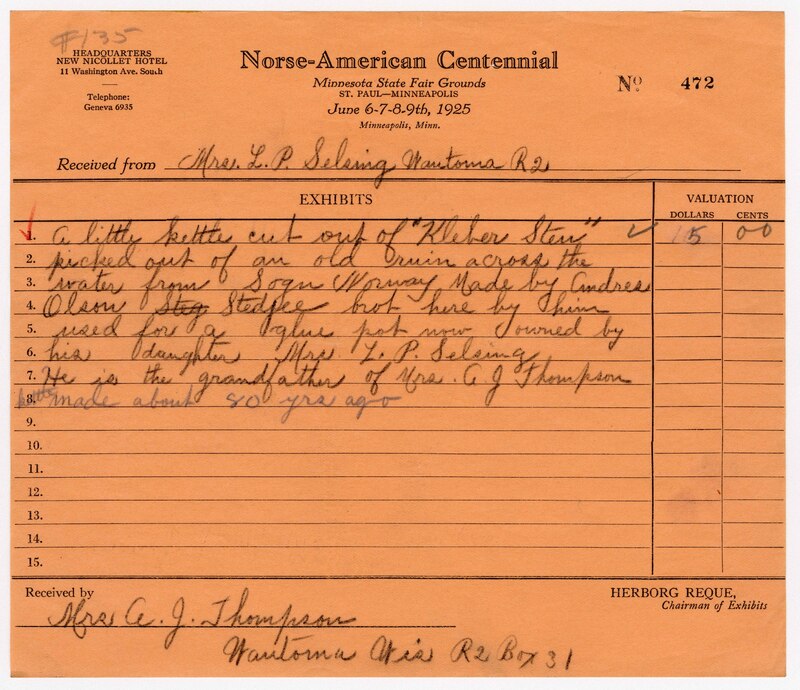 #135
HEADQUARTERS
NEW NICOLLET HOTEL
11 Washington Ave. South
Telephone:
Geneva 6935
Norse-American Centennial
Minnesota State Fair Grounds
ST. PAUL—MINNEAPOLIS
June 6-7-8-9th, 1925
Minneapolis, Minn.
Nº 472
Received from Mrs. L. P. Selsing Wautoma R2
EXHIBITS
VALUATION
DOLLARS CENTS
1. A little kettle cut out of "Kleber Sten" ✓ 15 00
2. picked out of an old ruin across the
3. water from Sogn Norway Made by Andres
4. Olson Steg Stedjee brot here by him
5. used for a glue pot now owned by
6. his daughter Mrs. L. P. Selsing
7. He is the grandfather of Mrs. A J Thompson
8. kettle made about 80 yrs ago
9.
10.
11.
12.
13.
14.
15.
Received by
Mrs A. J. Thompson
Wautoma Wis R2 Box 31
HERBORG REQUE,
Chairman of Exhibits